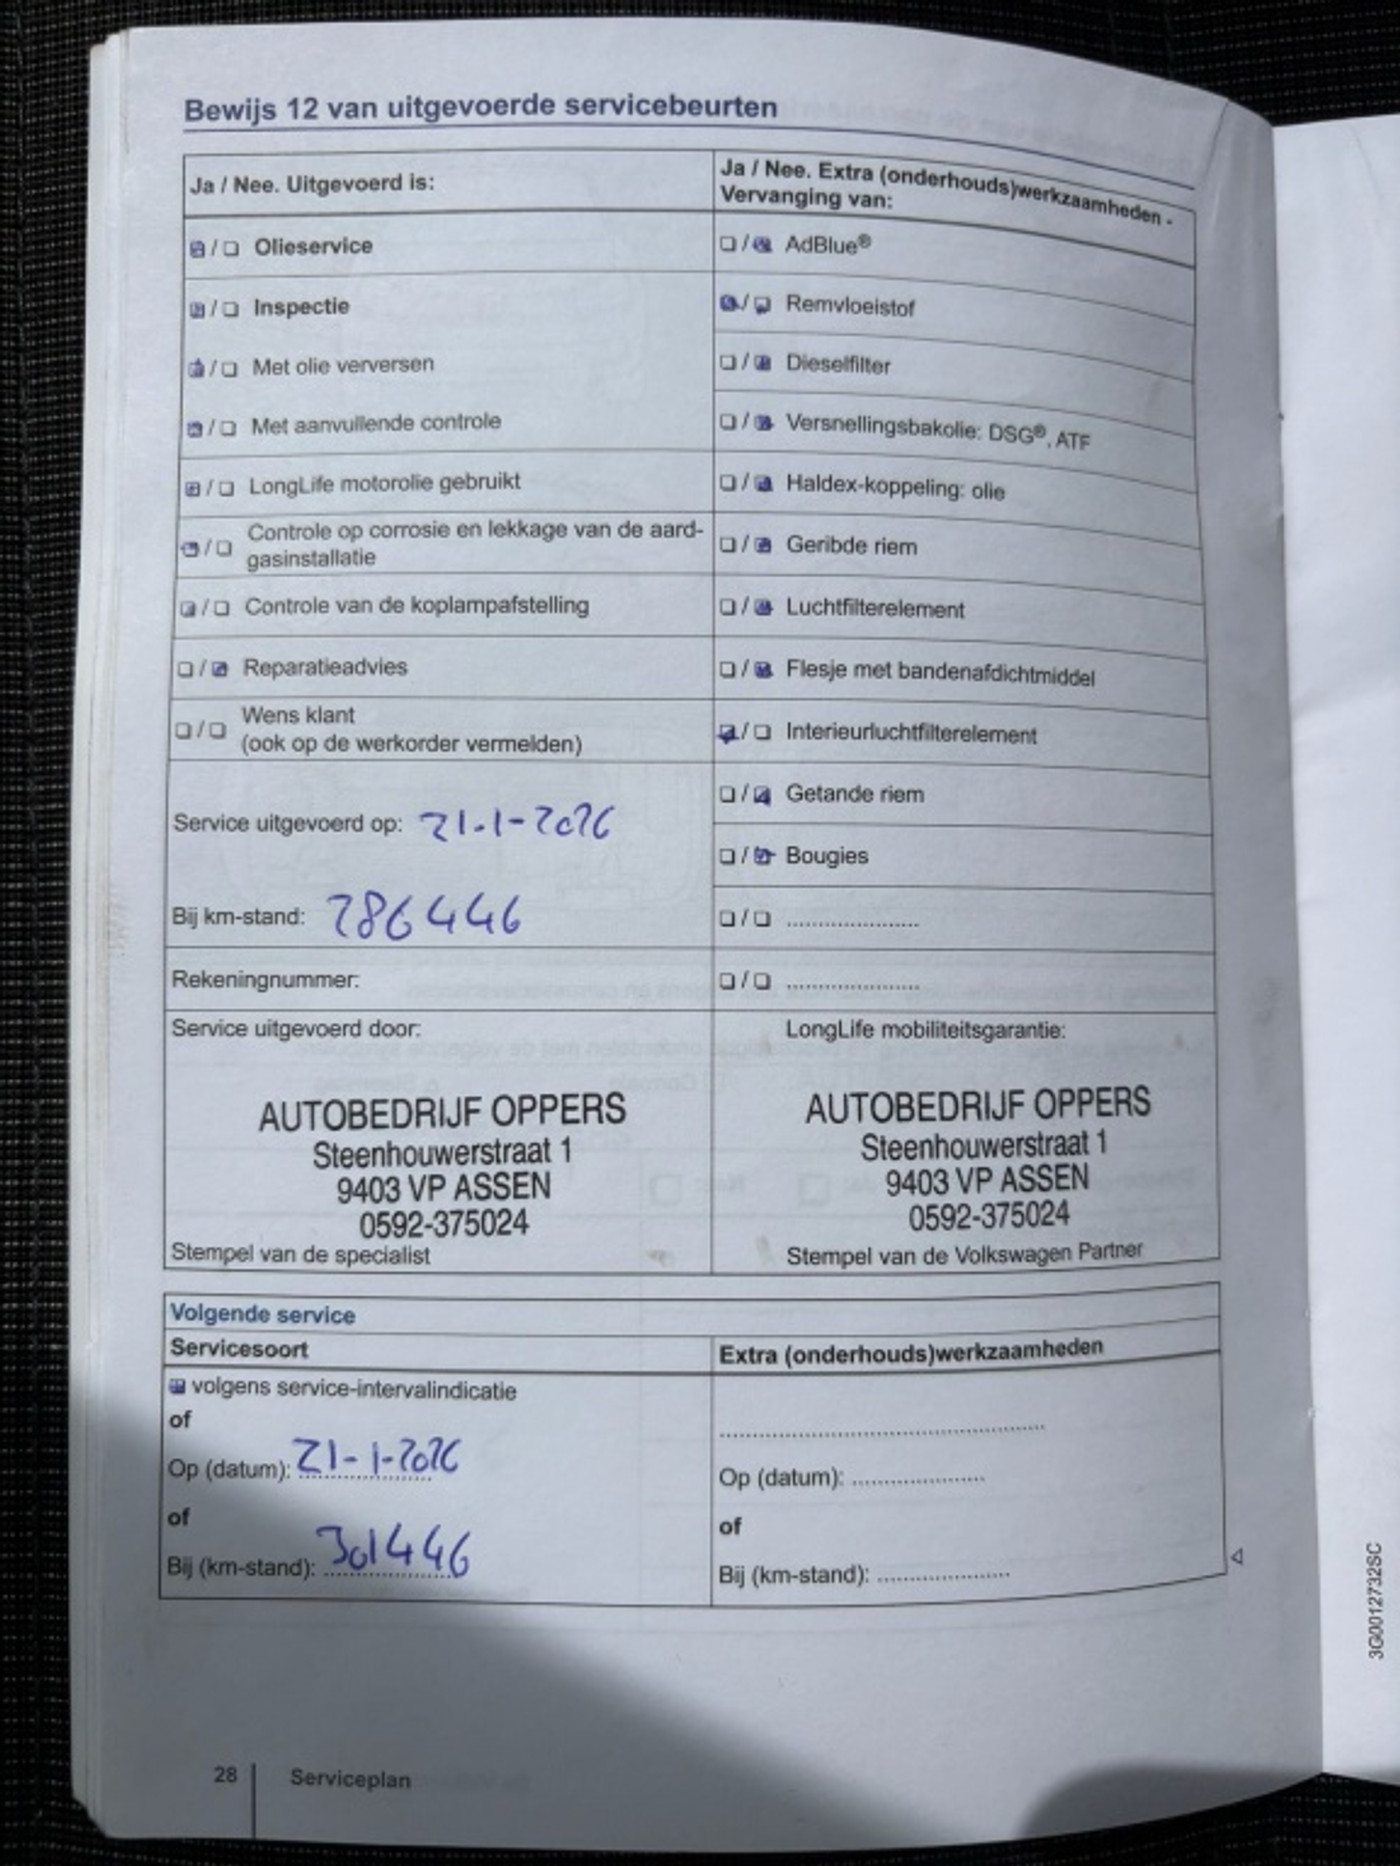 Bewijs 12 van uitgevoerde servicebeurten
Ja / Nee. Uitgevoerd is:
Olieservice
Inspectie
Met olie verversen
Met aanvullende controle
LongLife motorolie gebruikt
Controle op corrosie en lekkage van de aard-
gasinstallatie
Controle van de koplampafstelling
Reparatieadvies
Wens klant
(ook op de werkorder vermelden)
Service uitgevoerd op: 21-1-2026
Bij km-stand: 286446
Rekeningnummer:
Ja / Nee. Extra (onderhouds)werkzaamheden -
Vervanging van:
AdBlue®
Remvloeistof
Dieselfilter
Versnellingsbakolie: DSG®, ATF
Haldex-koppeling: olie
Geribde riem
Luchtfilterelement
Flesje met bandenafdichtmiddel
Interieurluchtfilterelement
Getande riem
Bougies
Service uitgevoerd door:
AUTOBEDRIJF OPPERS
Steenhouwerstraat 1
9403 VP ASSEN
0592-375024
Stempel van de specialist
LongLife mobiliteitsgarantie:
AUTOBEDRIJF OPPERS
Steenhouwerstraat 1
9403 VP ASSEN
0592-375024
Stempel van de Volkswagen Partner
Volgende service
Servicesoort
volgens service-intervalindicatie
of
Op (datum): 21-1-2026
of
Bij (km-stand): 301446
Extra (onderhouds)werkzaamheden
Op (datum):
of
Bij (km-stand):
28
Serviceplan
3G0012732SC